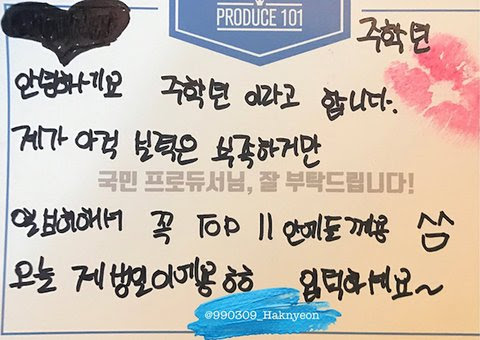 PRODUCE 101
주학년
안녕하세요 주학년 이라고 합니다.
제가 아직 실력은 부족하지만
국민 프로듀서님, 잘 부탁드립니다!
열심히해서 꼭 TOP 11 안에들께용 ^^
오늘 제 생일이에용ㅎㅎ 입덕하세요~
@990309_Haknyeon